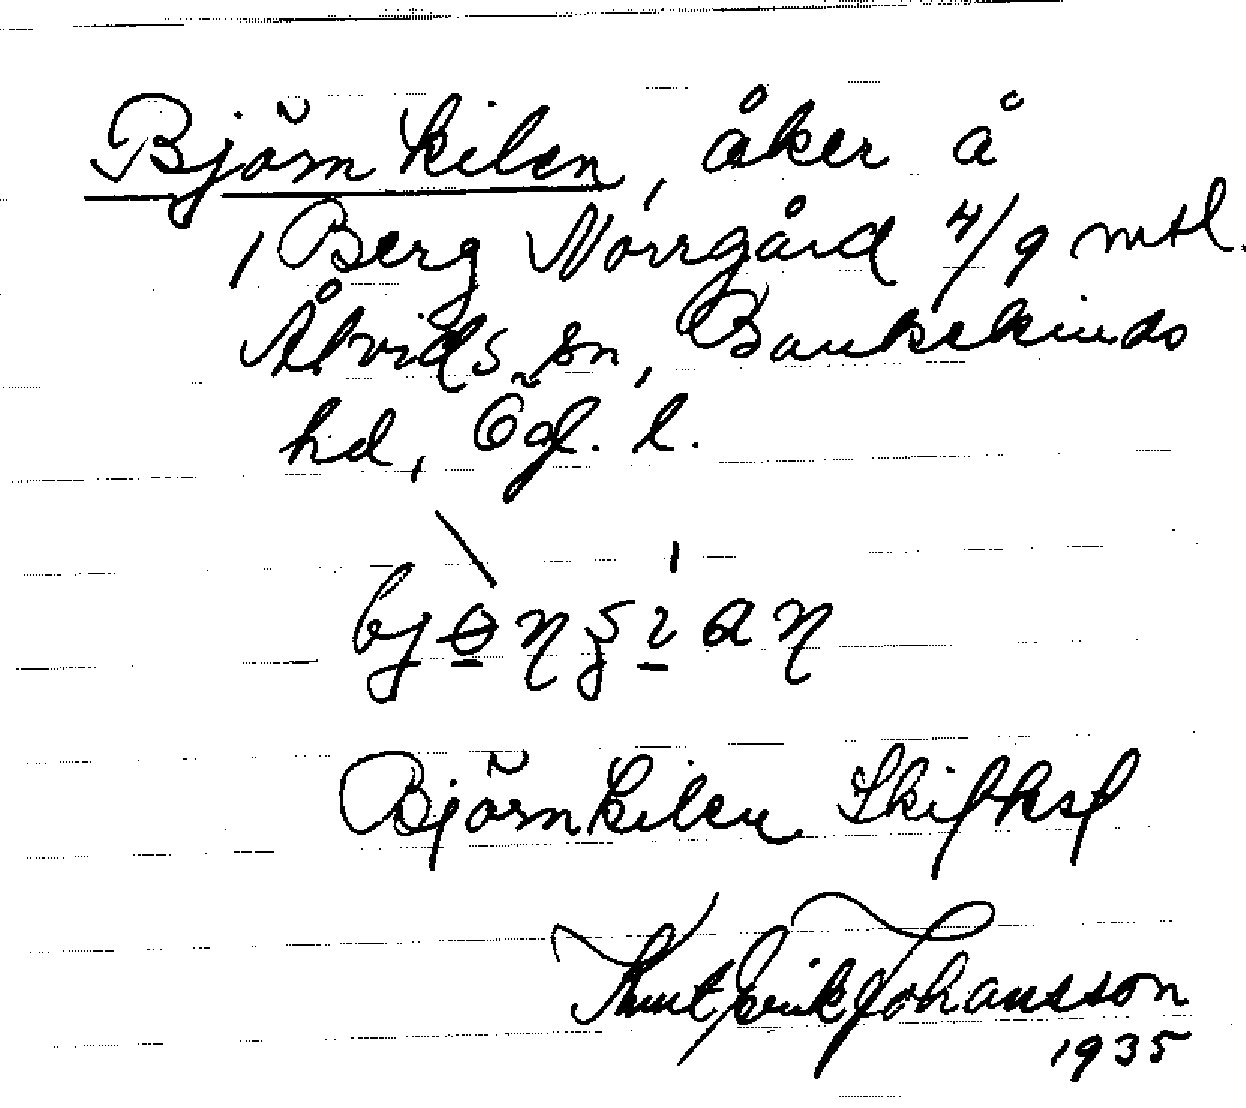 Björnkilen, åker å
1 Berg Norrgård 4/9 mtl.
Åtvids sn, Bankekinds
hd, Ögl. l.
Björnkilen Skifksf
Knut Erik Johansson
1935